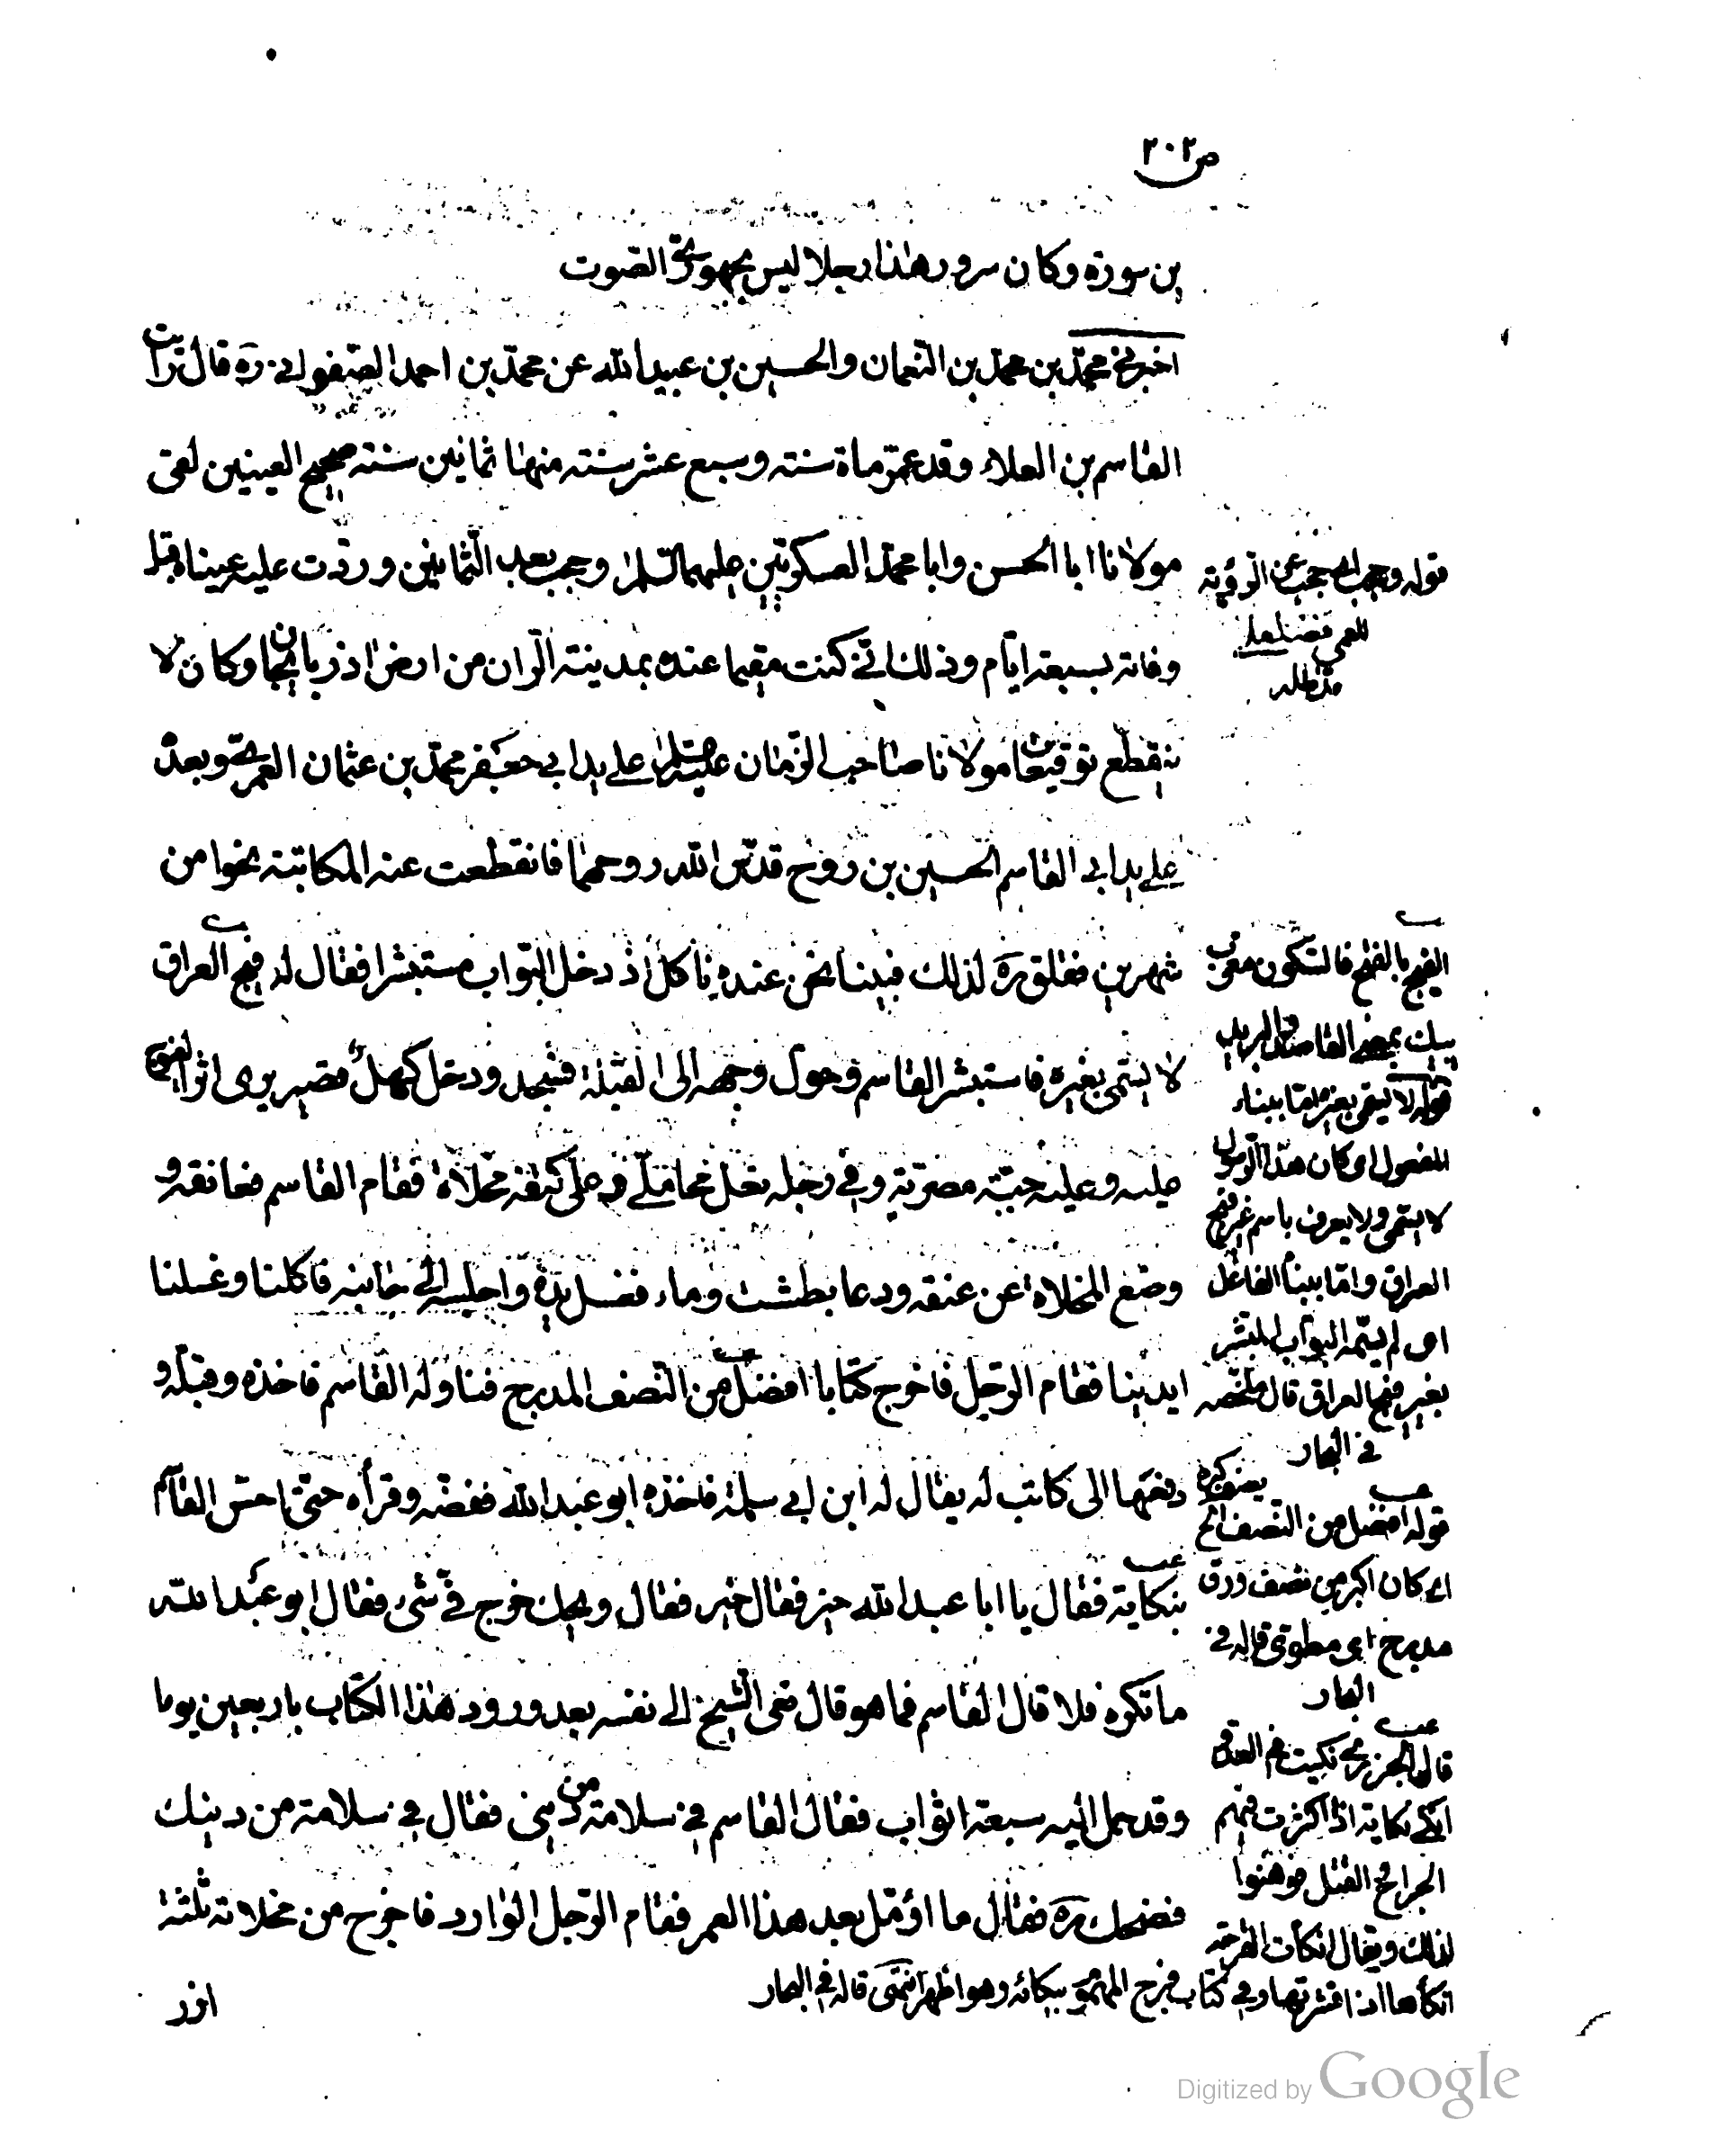 ص٢٠٢
بن سورة وكان سرور هذا رجلا ليس بجهوري الصوت
اخبرني محمد بن محمد بن النعمان والحسين بن عبيد الله عن محمد بن احمد الصفواني ره قال رايت
القاسم بن العلاء وقد عمر ماة سنة وسبع عشر سنة منها ثمانين سنة صحيح العينين لقى
مولانا ابا الحسن وابا محمد العسكريين عليهما السلام وحجب بعد الثمانين وردت عليه عيناه قبل
وفاته بسبعة ايام وذلك اني كنت مقيما عنده بمدينة الران من ارض اذربايجان وكان لا
ينقطع توقيعات مولانا صاحب الزمان عليه السلام على يد ابي جعفر محمد بن عثمان العمري وبعده
على يد ابي القاسم الحسين بن روح قدس الله روحهما فانقطعت عنه المكاتبة نحوا من
شهرين فقلق ره لذلك فبينا نحن عنده ناكل اذ دخل البواب مستبشرا فقال له فيج العراق
لا يسمى بغيره فاستبشر القاسم وحول وجهه الى القبلة فسجد ودخل كهل قصير يرى اثر الفيوج
عليه وعليه جبة مضرية وفي رجله نعل محاملي وعلى كتفه مخلاة فقام القاسم فعانقه و
وضع المخلاة عن عنقه ودعا بطشت وماء فغسل يده واجلسه الى جانبه فاكلنا وغسلنا
ايدينا فقام الرجل فاخرج كتابا افضل من النصف المدرج فناوله القاسم فاخذه وقبله و
دفعها الى كاتب له يقال له ابن ابي سلمة فاخذه ابو عبد الله ففضه وقرأه حتى احس القاسم
بنكاية فقال يا ابا عبد الله خير فقال خير فقال ويحك خرج في شئ فقال ابو عبد الله
ما تكره فلا قال القاسم فما هو قال نعى الشيخ الى نفسه بعد ورود هذا الكتاب باربعين يوما
وقد حمل اليه سبعة اثواب فقال القاسم في سلامة من ديني فقال في سلامة من دينك
فضحك ره فقال ما اؤمل بعد هذا العمر فقام الرجل الوارد فاخرج من مخلاته ثلثة
ازر
قوله وحجب اى حجب عن الرؤية
للعمى
مد ظله
الفيج بالفتح فالسكون معرب
پيك بمعنى القاصد والبريد
قوله لا يسمى بغيره اما ببناء
للمفعول اى كان هذا الرسول
لا يسمى ولا يعرف باسم غير فيج
العراق واما ببناء الفاعل
اى لم يسمه البواب المبشر
بغير فيج العراق قال ملخصه
في البحار
قوله افضل من النصف الخ
اى كان اكبر من نصف ورق
مدرج اى مطوى قاله في
البحار
قال الجزري نكيت في العدو
انكى نكاية اذا اكثرت فيهم
الجراح القتل فوهنوا
لذلك ويقال نكات القرحة
انكأها اذا قشرتها وفي كتاب فرج المهموم ببكائه وهو اظهر انتهى قاله في البحار
Digitized by Google